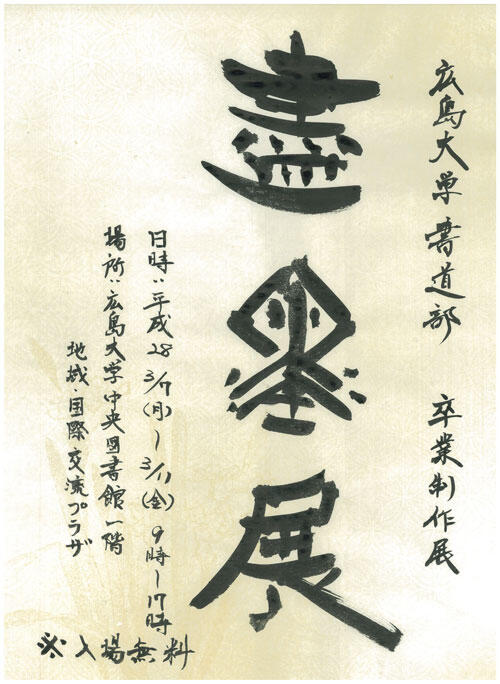 広島大学書道部　卒業制作展
盡墨展
日時：平成28 3/7(月)〜3/11(金) 9時〜17時
場所：広島大学中央図書館一階
地域・国際交流プラザ
※入場無料